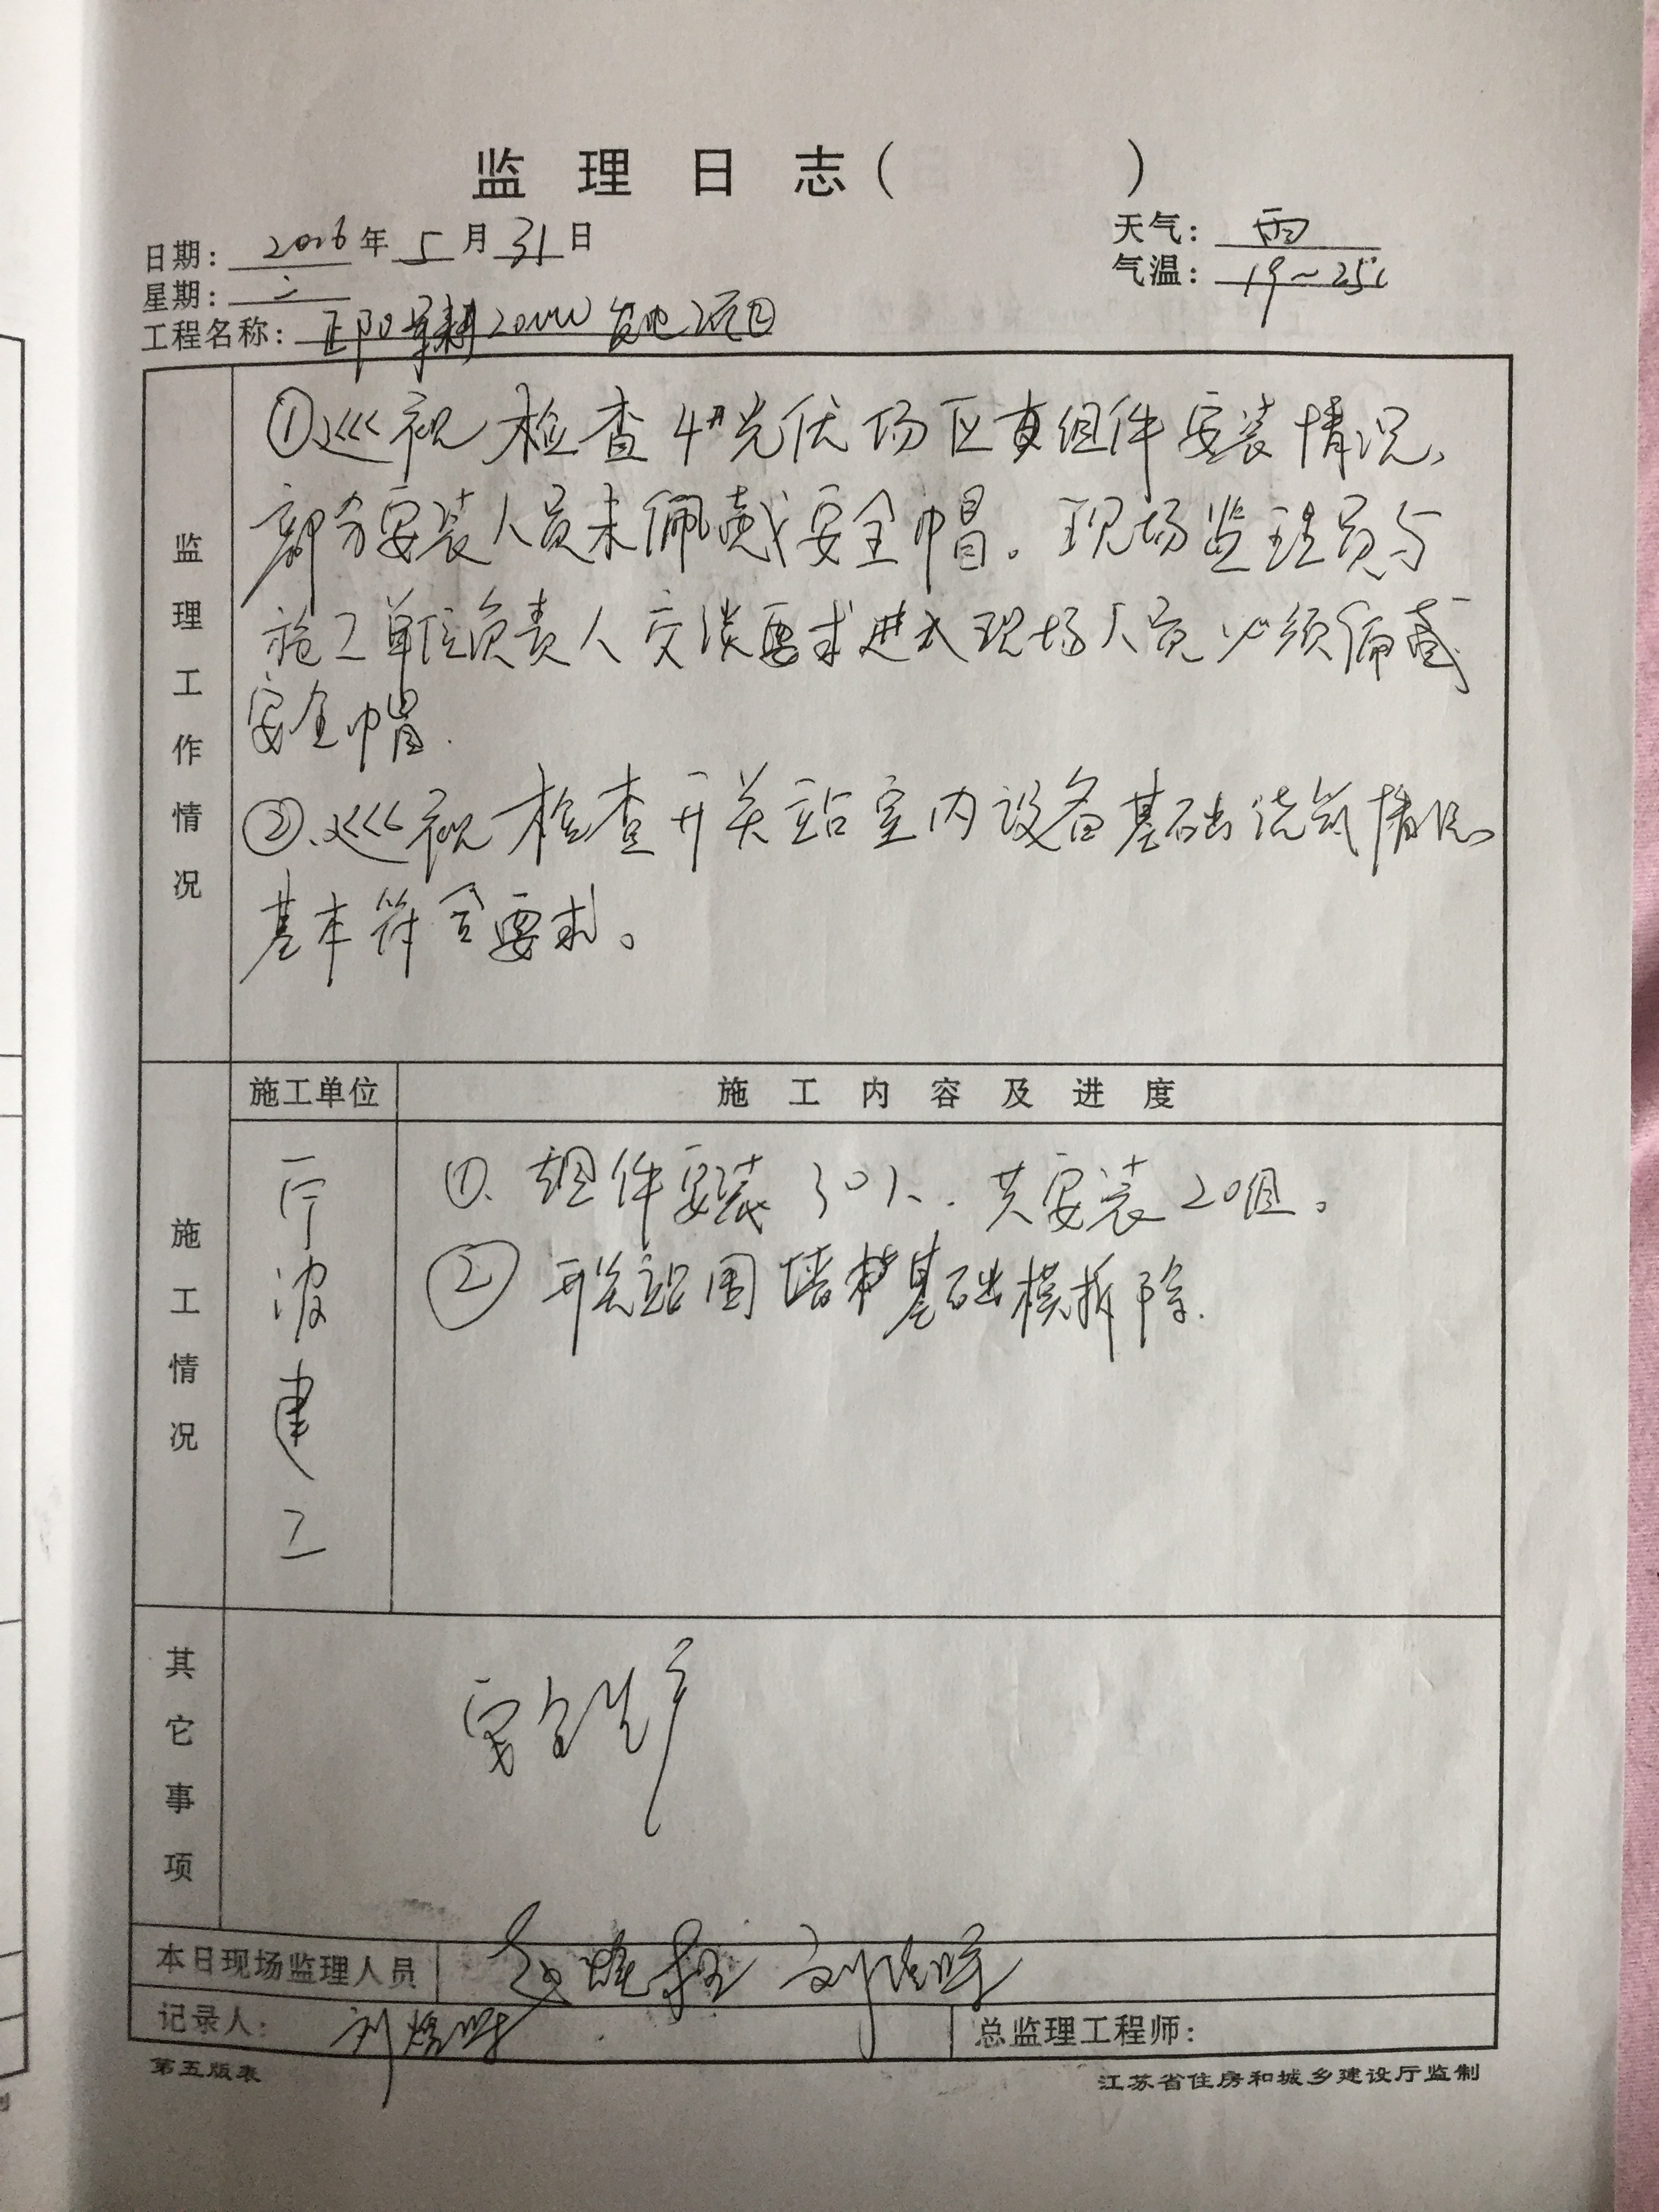 监理日志（　　）
日期：2016年5月31日
天气：雨
星期：二
气温：19～25℃
工程名称：正阳 20MW发电项目
监理工作情况
①巡视检查4#光伏场区 组件安装情况，
部分安装人员未佩戴安全帽。现场监理员与
施工单位负责人交谈要求进入现场人员必须佩戴
安全帽.
②、巡视检查开关站室内设备基础浇筑情况。
基本符合要求。
施工单位
施工内容及进度
施工情况
宁波建工
①、组件安装30人．共安装20组。
② 开关站围墙 基础模拆除.
其它事项
安全生产
本日现场监理人员
记录人：刘
总监理工程师：
第五版表
江苏省住房和城乡建设厅监制